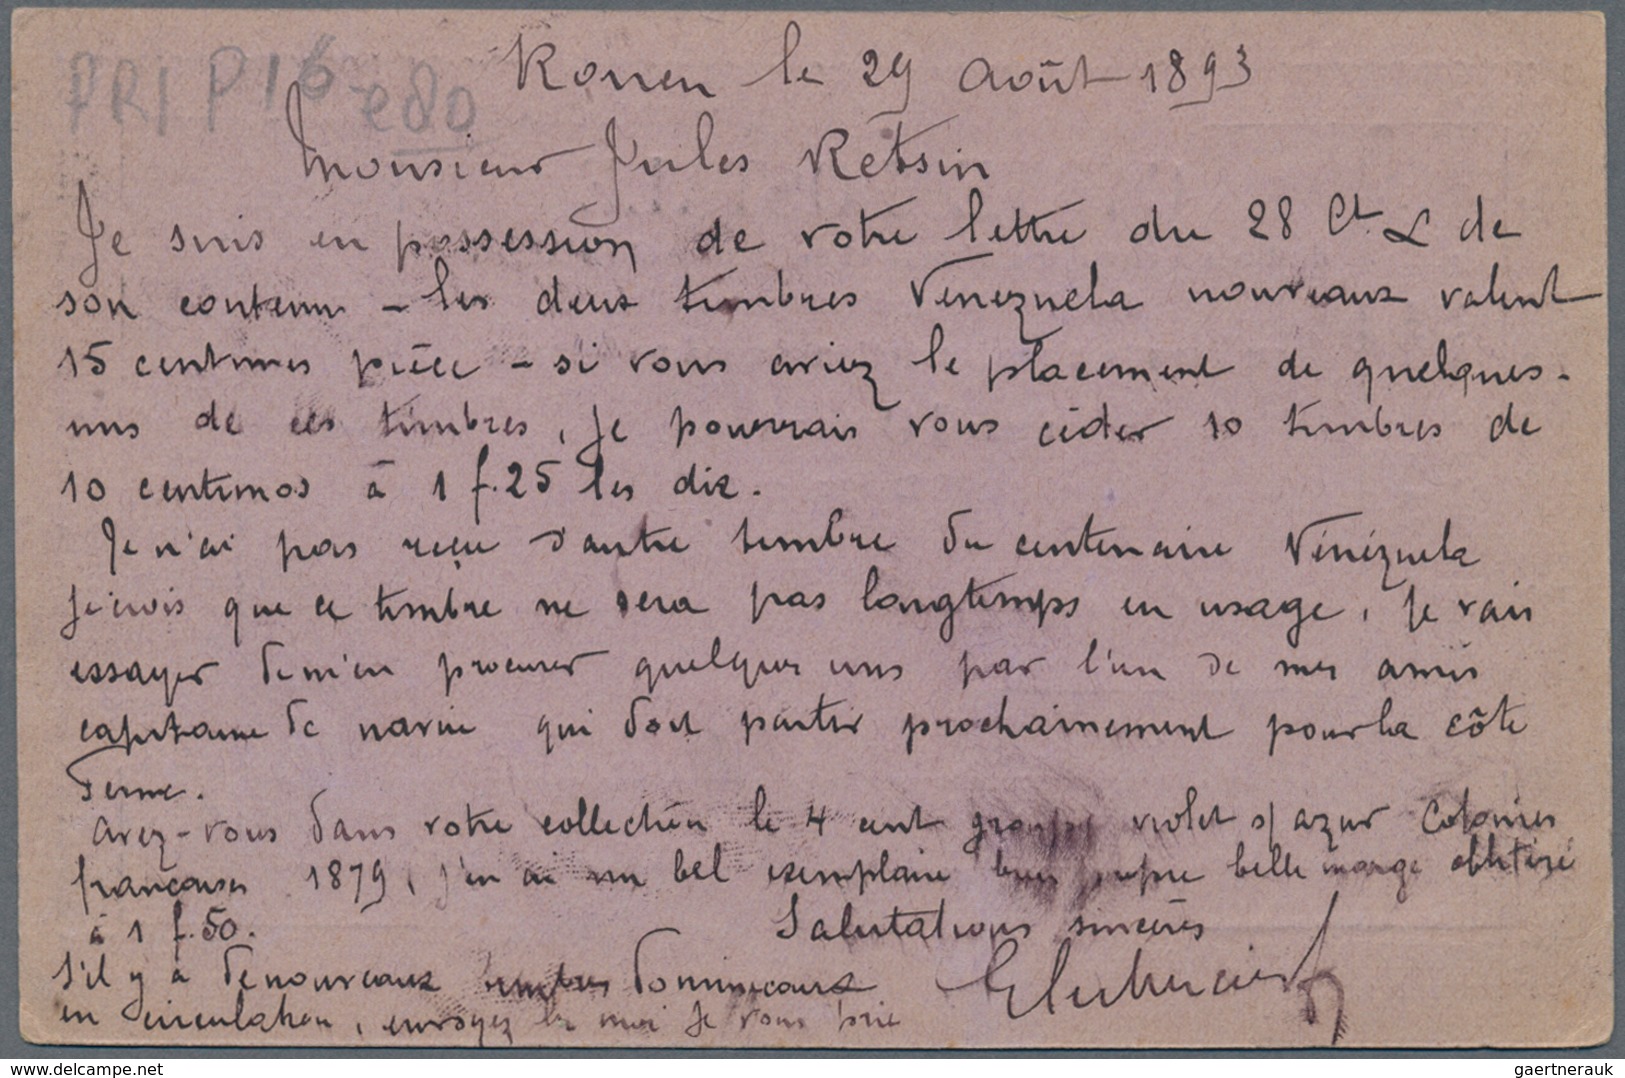 PRI P16
e80
Rouen le 29 Août 1893
Monsieur Jules Rétsin
Je suis en possession de votre lettre du 28 Ct & de
son contenu - les deux timbres Venezuela nouveaux valent
15 centimes pièce - si vous aviez le placement de quelques-
uns de ces timbres, je pourrais vous céder 10 timbres de
10 centimos à 1 f.25 les dix.
Je n'ai pas reçu d'autre timbre du centenaire Vénézuela
Je crois que ce timbre ne sera pas longtemps en usage, je vais
essayer de m'en procurer quelques uns par l'un de mes amis
capitaine de navire qui doit partir prochainement pour la côte
ferme.
avez-vous dans votre collection le 4 cent groupe violet s/ azur Colonies
françaises 1879, j'en ai un bel exemplaire bien propre belle marge oblitéré
à 1 f.50.
Salutations sincères
S'il y a de nouveaux timbres dominicains
en circulation, envoyez les moi je vous prie
delcampe.net
gaertnerauk